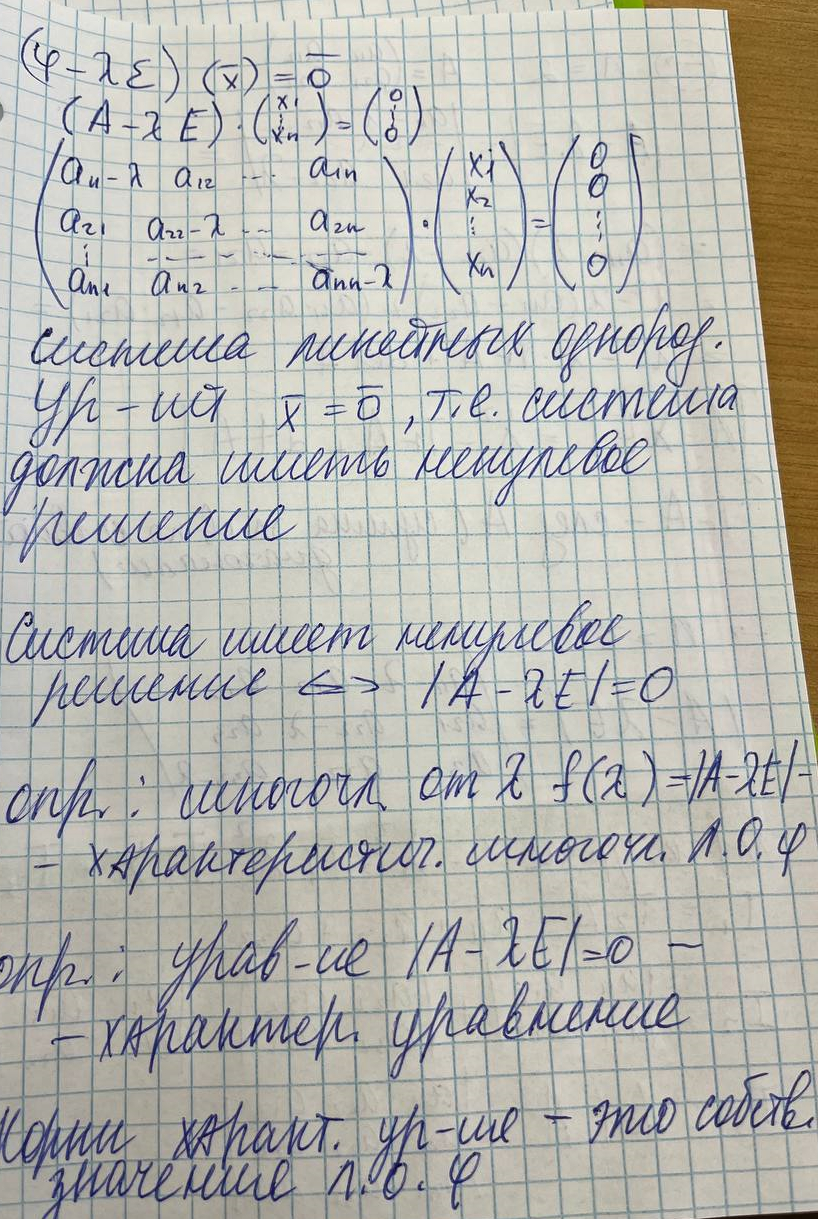 (φ - λℰ) (x̄) = 0̄
(A - λE) · (x₁ ⋮ xₙ) = (0 ⋮ 0)
(a₁₁-λ a₁₂ ... a₁ₙ) (x₁) (0)
(a₂₁ a₂₂-λ ... a₂ₙ) · (x₂) = (0)
(⋮ - - - - - -) (⋮) (⋮)
(aₙ₁ aₙ₂ ... aₙₙ-λ) (xₙ) (0)
система линейных однород.
ур-ий x̄ = 0̄, т.е. система
должна иметь ненулевое
решение
Система имеет ненулевое
решение <=> |A - λE| = 0
опр.: многочл. от λ f(λ) = |A-λE| -
- характеристич. многочл. л.о. φ
опр.: урав-ие |A - λE| = 0 -
- характер. уравнение
Корни характ. ур-ие - это собств.
значение л.о. φ